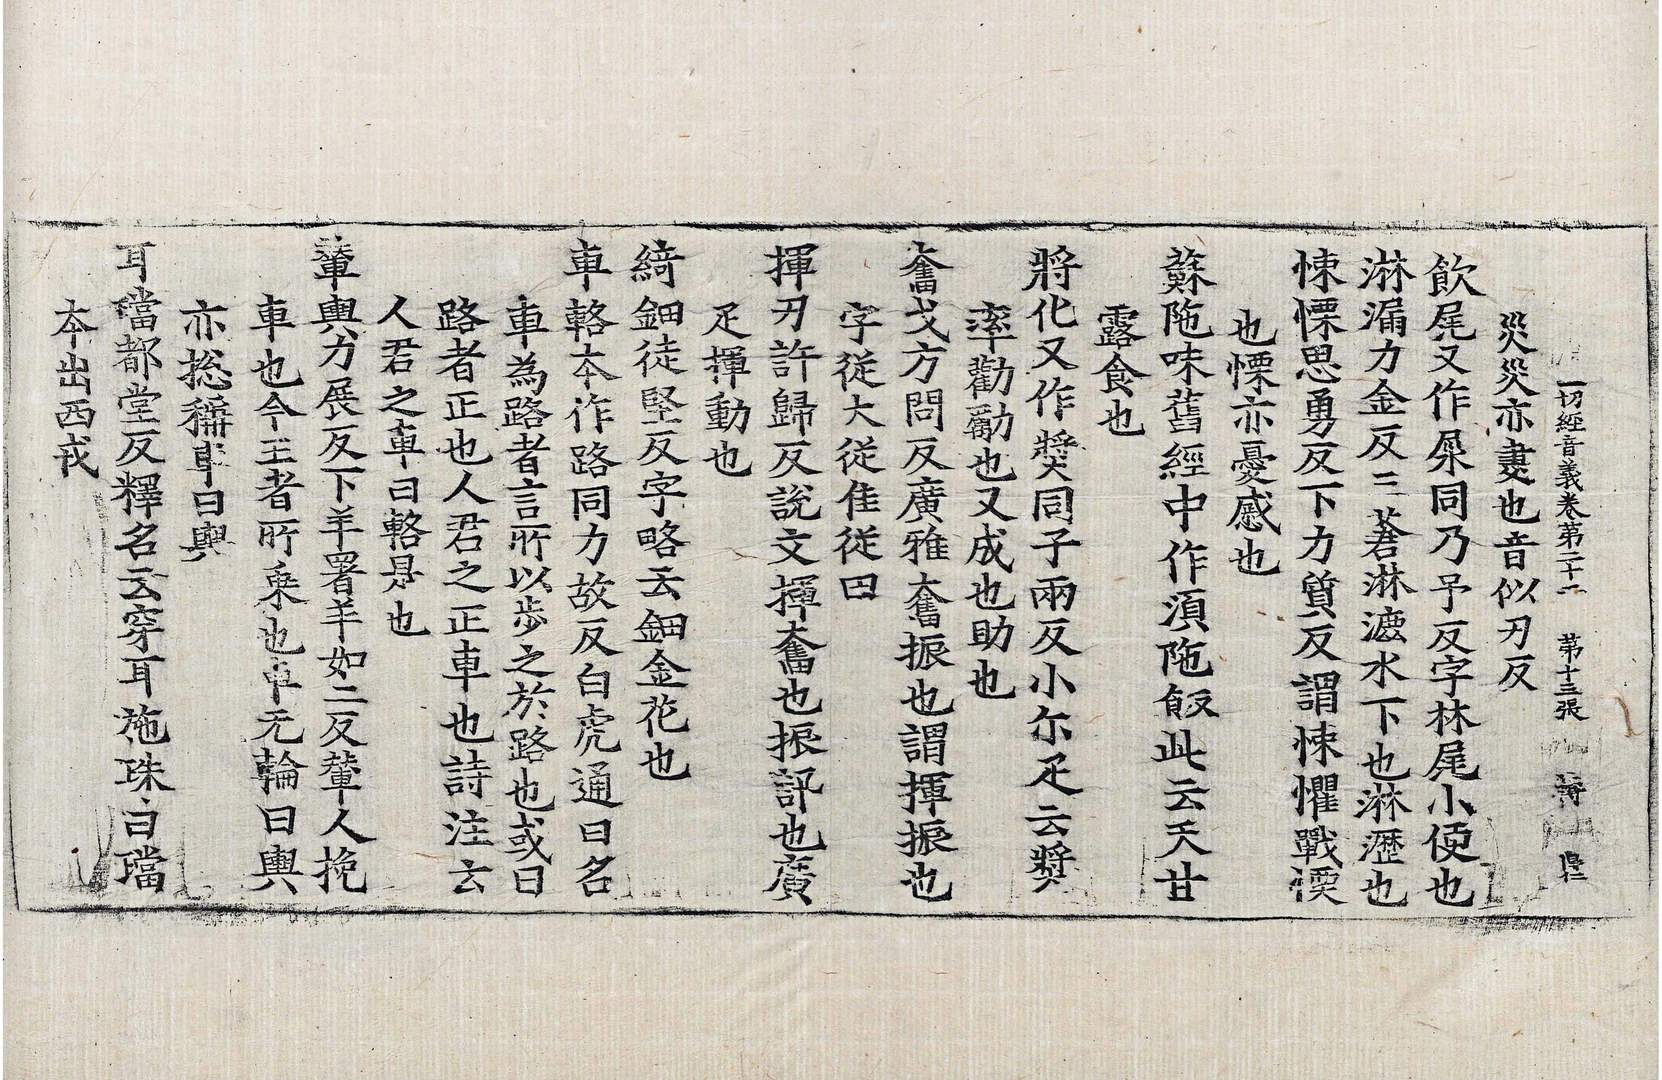 一切經音義卷第二十一 第十三張
災災亦燼也音似刃反
飲尾又作𡱁同乃予反字林尾小便也
淋漏力金反三蒼淋漉水下也淋瀝也
悚慄思勇反下力質反謂悚懼戰慄
也慄亦憂慼也
蘇陁味舊經中作須陁飯此云天甘
露食也
將化又作奬同子兩反小尒疋云奬
率勸勵也又成也助也
奮戈方問反廣雅奮振也謂揮振也
字從大從隹從田
揮刃許歸反說文揮奮也振訊也廣
疋揮動也
綺鈿徒堅反字略云鈿金花也
車輅本作路同力故反白虎通曰名
車為路者言所以步之於路也或曰
路者正也人君之正車也詩注云
人君之車曰輅是也
輦輿力展反下羊署羊如二反輦人挽
車也今王者所乘也車无輪曰輿
亦捴稱車曰輿
耳璫都堂反釋名云穿耳施珠曰璫
本出西戎